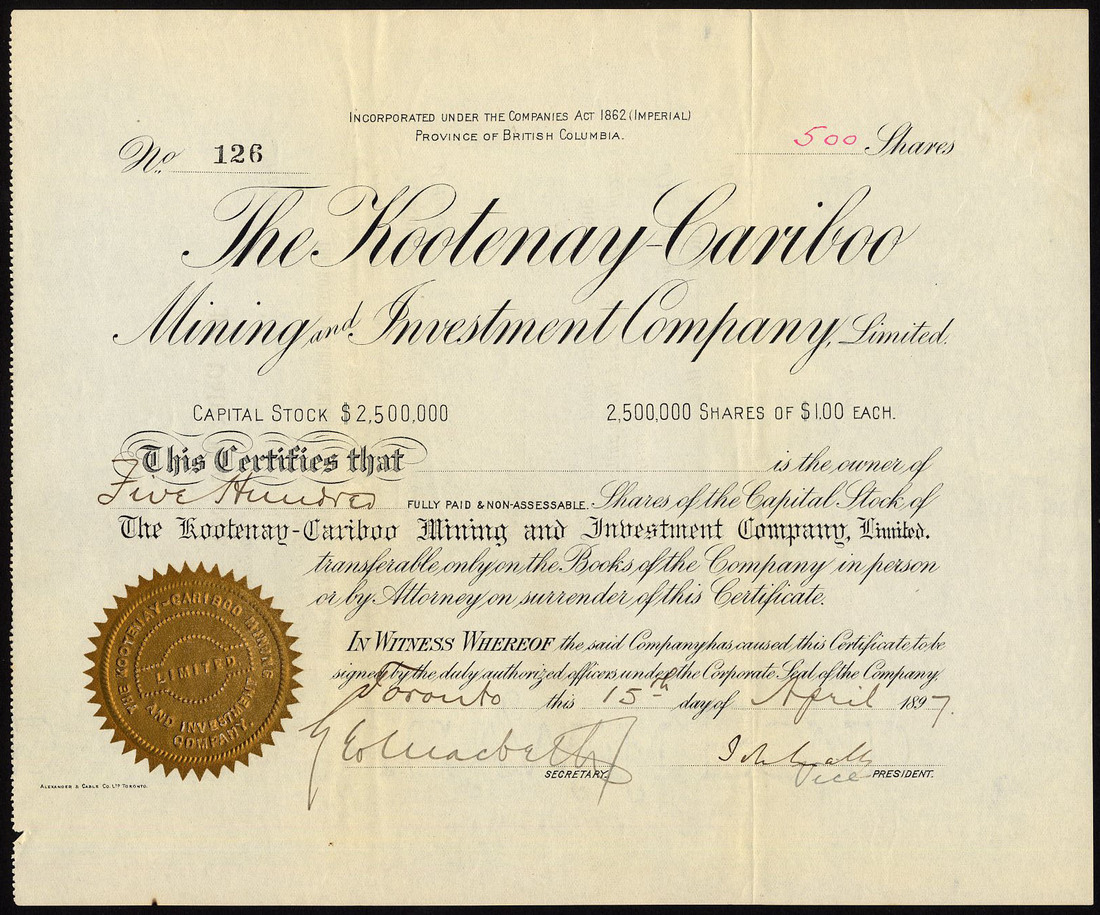 INCORPORATED UNDER THE COMPANIES ACT 1862 (IMPERIAL)
PROVINCE OF BRITISH COLUMBIA.
No. 126
500 Shares
The Kootenay-Cariboo
Mining and Investment Company, Limited.
CAPITAL STOCK $2,500,000
2,500,000 SHARES OF $1.00 EACH.
This Certifies that is the owner of
Five Hundred FULLY PAID & NON-ASSESSABLE. Shares of the Capital Stock of
The Kootenay-Cariboo Mining and Investment Company, Limited.
transferable only on the Books of the Company in person
or by Attorney on surrender of this Certificate.
IN WITNESS WHEREOF the said Company has caused this Certificate to be
signed by the duly authorized officers under the Corporate Seal of the Company
Toronto this 15th day of April 1897.
Geo Macbeth
SECRETARY.
Vice PRESIDENT.
THE KOOTENAY-CARIBOO MINING
AND INVESTMENT
COMPANY.
LIMITED
ALEXANDER & CABLE CO. LTD TORONTO.